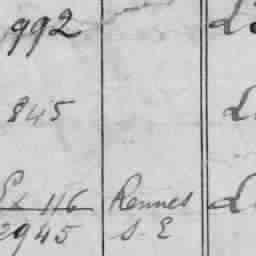 992
845
Ex 116 Rennes
2945 S. E